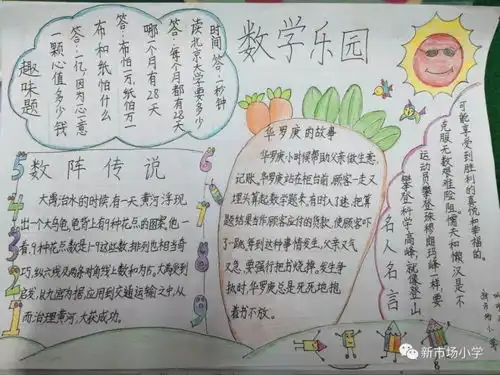 数学乐园
读北京大学要多少
时间 答:一秒钟
哪个月有28天
答:每个月都有28天
布和纸怕什么
答:布怕一万,纸怕万一
一颗心值多少钱
答:亿,因为心一意
趣味题
数阵传说
大禹治水的时候,有一天黄河浮现
出一个大乌龟,龟背上有9种花点的图案,他一
看,9种花点数是1-9这些数,排列也相当奇
巧,纵六线及两条对角线上数和为15,大禹受到
启发,以九宫为据,应用到交通运输之中,从
而治理黄河,大获成功。
华罗庚的故事
华罗庚小时候帮助父亲做生意,
记账。华罗庚站在柜台前,顾客一走又
埋头算起数学题来,有时入了迷,把算
题结果当作顾客应付的货款,使顾客吓
了一跳,等到这种事情发生,父亲又气
又急,要强行把书烧掉。发生争
执时,华罗庚总是死死地抱
着书不放。
名人名言
攀登科学高峰,就像登山
运动员攀登珠穆朗玛峰一样,要
克服无数艰难险阻,懦夫和懒汉是不
可能享受到胜利的喜悦和幸福的。
新市场小学